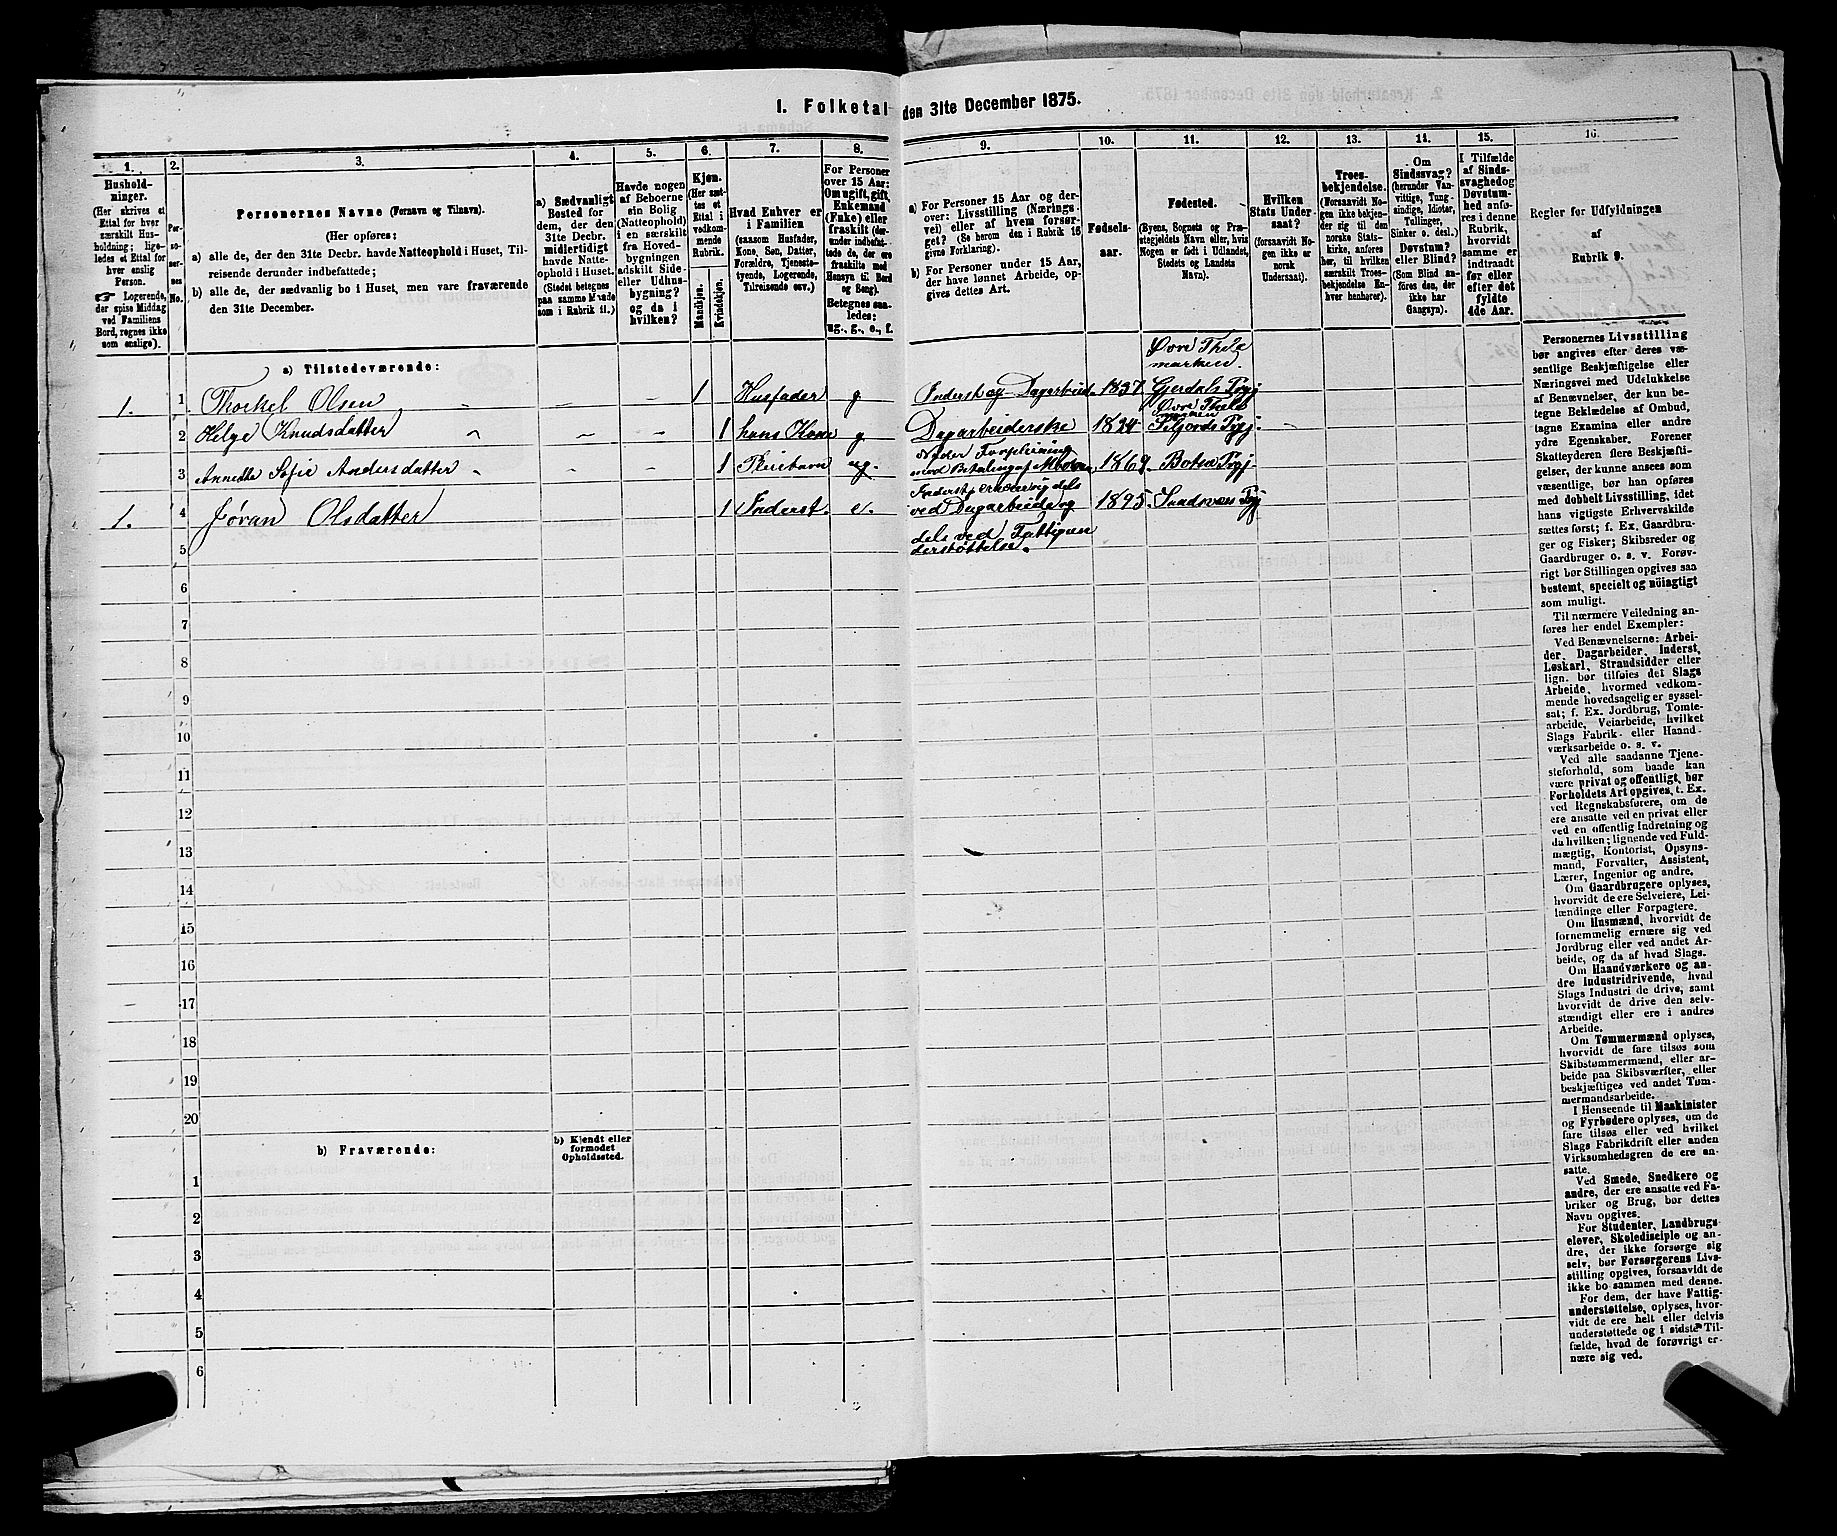 I. Folketal den 31te December 1875.
1.
2.
3.
4.
5.
6.
7.
8.
9.
10.
11.
12.
13.
14.
15.
16.
Hushold-
ninger.
(Her skrives et
Ettal for hver
særskilt Hus-
holdning; lige-
ledes et Ettal for
hver enslig
Person.
Logerende,
der spise Middag
ved Familiens
Bord, regnes ikke
som enslige).
Per-
so-
ner-
nes
No.
Personernes Navne (Fornavn og Tilnavn).
(Her opføres:
a) alle de, der den 31te Decbr. havde Natteophold i Huset, Til-
reisende derunder indbefattede;
b) alle de, der sædvanlig bo i Huset, men vare fraværende
den 31te December.
a) Sædvanligt
Bosted for
dem, der den
31te Decbr.
midlertidigt
havde Natte-
ophold i Huset.
(Stedet betegnes
paa samme Maade
som i Rubrik 11.)
Havde nogen
af Beboerne
sin Bolig
(Natteophold)
i en særskilt
fra Hoved-
bygningen
adskilt Side-
eller Udhus-
bygning?
og da i
hvilken?
Kjøn.
(Her sæt-
tes et
Ettal i
vedkom-
mende
Rubrik.
Mandkjøn.
Kvindekjøn.
Hvad Enhver er
i Familien
(saasom Husfader,
Kone, Søn, Datter,
Forældre, Tjeneste-
tyende, Logerende,
Tilreisende osv.)
For Personer
over 15 Aar:
Om ugift, gift,
Enkemand
(Enke) eller
fraskilt (der-
under indbefat-
tede de, der
ere fraskilte med
Hensyn til Bord
og Seng).
Betegnes saa-
ledes:
ug., g., e., f.
a) For Personer 15 Aar og der-
over: Livsstilling (Nærings-
vei) eller af hvem forsør-
get? (Se herom den i Rubrik 16
givne Forklaring).
b) For Personer under 15 Aar,
der have lønnet Arbeide, op-
gives dettes Art.
Fødsels-
aar.
Fødested.
(Byens, Sognets og Præ-
stegjeldets Navn eller, hvis
Nogen er født i Udlandet,
Stedets og Landets
Navn).
Hvilken
Stats Under-
saat?
(forsaavidt No-
gen ikke er
norsk
Undersaat).
Troes-
bekjendelse.
(Forsaavidt No-
gen ikke bekjen-
der sig til den
norske Stats-
kirke, anføres
her, til hvilken
særskilt Troes-
bekjendelse En-
hver henhører).
Om
Sindssvag?
(herunder Van-
vittige, Tung-
sindige, Idioter,
Tullinger,
Sinker o. desl.)
Døvstum?
eller Blind?
(Som Blind an-
føres den, der
ikke har
Gangsyn).
I Tilfælde
af Sinds-
svaghed og
Døvstum-
hed anfø-
res i denne
Rubrik,
hvorvidt
samme er
indtraadt
før eller
efter det
fyldte
4de Aar.
Regler for Udfyldningen
af
Rubrik 9.
a) Tilstedeværende:
Øvre Thele
marken.
1. 1 Thorkel Olsen 1 Husfader g Inderst og Dagarbeid. 1837 Gjerdals Prgj
Øvre Thele
marken
2 Helge Knudsdatter 1 hans Kone g Dagarbeiderske 1824 Siljords Prgj.
3 Annette Sofie Andersdatter 1 Pleiebarn ug. Nyder Forpleining
mod Betaling af Moderen 1869 Botne Prgj
1. 4 Jøran Olsdatter 1 Inderst. e. Inderst, ernærer sig dels
ved Dagarbeide og 1895 Sandsvær Prgj
5 dels ved Fattigun
derstøttelse.
6
7
8
9
10
11
12
13
14
15
16
17
18
19
20
b) Fraværende:
b) Kjendt eller
formodet
Opholdssted.
1
2
3
4
5
6
Personernes Livsstilling
bør angives efter deres væ-
sentlige Beskjæftigelse eller
Næringsvei med Udelukkelse
af Benævnelser, der kun be-
tegne Beklædelse af Ombud,
tagne Examina eller andre
ydre Egenskaber. Forener
Skatteyderen flere Beskjæfti-
gelser, der kunne ansees som
væsentlige, bør han opføres
med dobbelt Livsstilling, idet
hans vigtigste Erhvervskilde
sættes først; f. Ex. Gaardbru-
ger og Fisker; Skibsreder og
Gaardbruger o. s. v. Forøv-
rigt bør Stillingen opgives saa
bestemt, specielt og nøiagtigt
som muligt.
Til nærmere Veiledning an-
føres her endel Exempler:
Ved Benævnelserne: Arbei-
der, Dagarbeider, Inderst,
Løskarl, Strandsidder eller
lign. bør tilføies det Slags
Arbeide, hvormed vedkom-
mende hovedsagelig er syssel-
sat; f. Ex. Jordbrug, Tomte-
arbeide, Veiarbeide, hvilket
Slags Fabrik- eller Haand-
værksarbeide o. s. v.
Ved alle saadanne Tjene-
steforhold, som baade kan
være privat og offentligt, bør
Forholdets Art opgives, t. Ex.
ved Regnskabsførere, om de
ere ansatte ved en privat eller
ved en offentlig Indretning og
da hvilken; lignende ved Fuld-
mægtig, Kontorist, Opsyns-
mand, Forvalter, Assistent,
Lærer, Ingeniør og andre.
Om Gaardbrugere oplyses,
hvorvidt de ere Selveiere, Lei-
lændinge eller Forpagtere.
Om Husmænd, hvorvidt de
fornemmelig ernære sig ved
Jordbrug eller ved andet Ar-
beide, og da af hvad Slags.
Om Haandværkere og an-
dre Industridrivende, hvad
Slags Industri de drive, samt
hvorvidt de drive den selv-
stændigt eller ere i andres
Arbeide.
Om Tømmermænd oplyses,
hvorvidt de fare tilsøs som
Skibstømmermænd, eller ar-
beide paa Skibsværfter, eller
beskjæftiges ved andet Tøm-
mermandsarbeide.
I Henseende til Maskinister
og Fyrbødere oplyses, om de
fare tilsøs eller ved hvilket
Slags Fabrikdrift eller anden
Virksomhedsgren de ere an-
satte.
Ved Smede, Snedkere og
andre, der ere ansatte ved Fa-
briker og Brug, bør dettes
Navn opgives.
For Studenter, Landbrugs-
elever, Skoledisciple og an-
dre, der ikke forsørge sig
selv, bør Forsørgerens Livs-
stilling opgives, forsaavidt de
ikke bo sammen med denne.
For dem, der have Fattig-
understøttelse, oplyses, hvor-
vidt de ere helt eller delvis
understøttede og i sidste Til-
fælde, hvad de forøvrigt er-
nære sig ved.